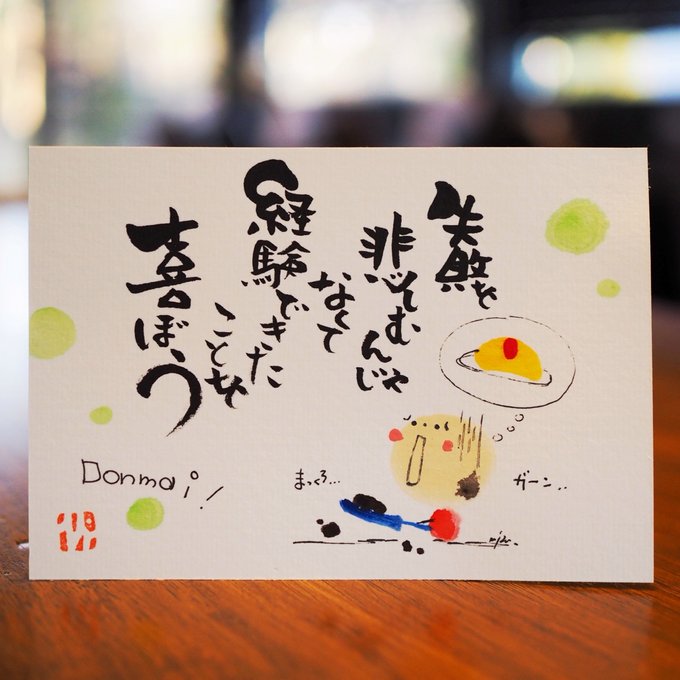 失敗を
悲しむんじゃ
なくて
経験できた
ことを
喜ぼう
Donmai!
まっくろ…
ガーン..